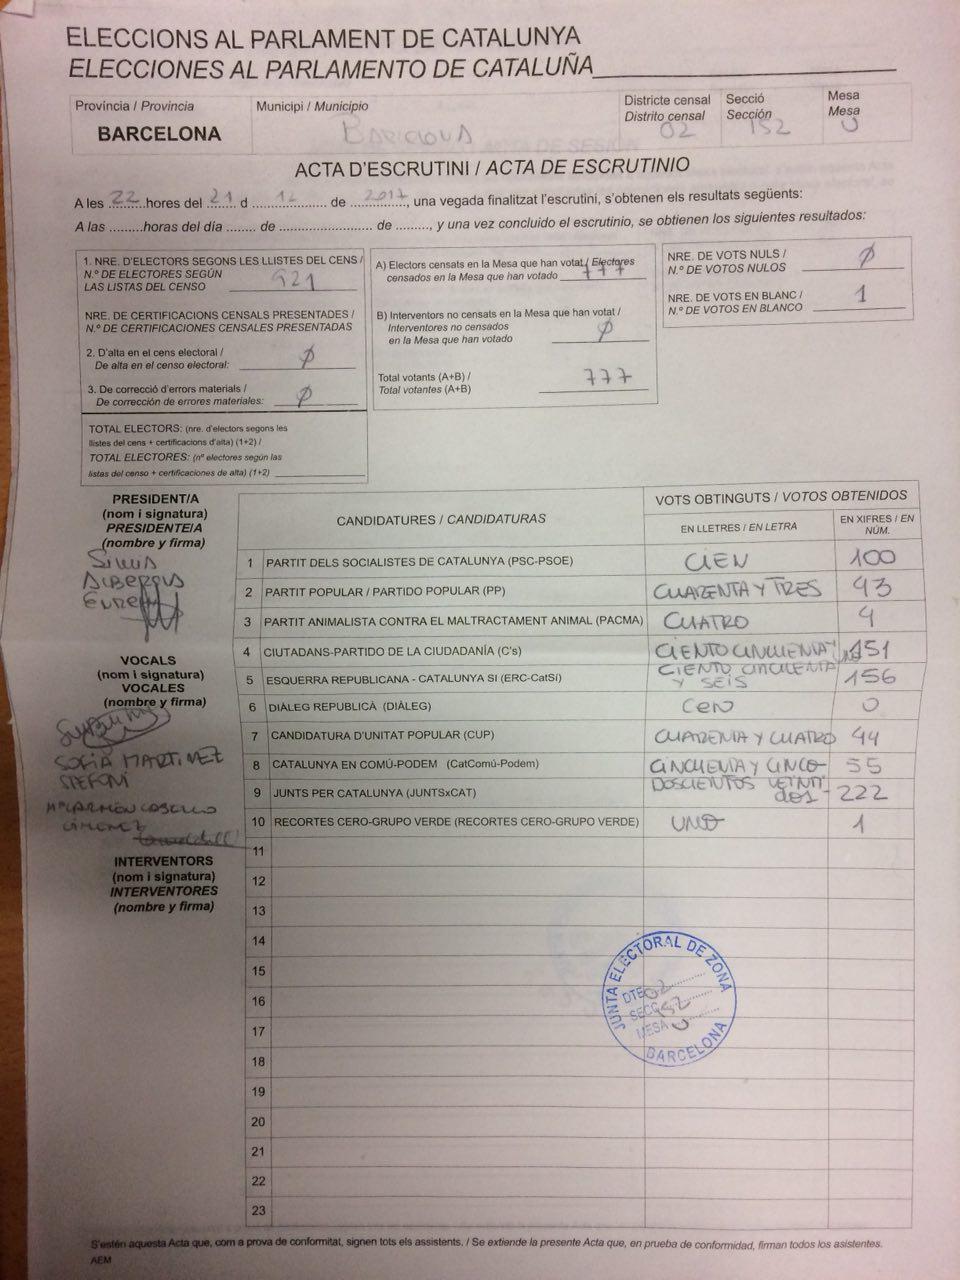 ELECCIONS AL PARLAMENT DE CATALUNYA
ELECCIONES AL PARLAMENTO DE CATALUÑA
Província / Provincia
BARCELONA
Municipi / Municipio
Districte censal
Distrito censal
02
Secció
Sección
152
Mesa
Mesa
U
ACTA D'ESCRUTINI / ACTA DE ESCRUTINIO
A les 22 hores del 21 d 12 de 2017, una vegada finalitzat l'escrutini, s'obtenen els resultats següents:
A las .........horas del día ........ de ......................... de ........., y una vez concluido el escrutinio, se obtienen los siguientes resultados:
1. NRE. D'ELECTORS SEGONS LES LLISTES DEL CENS /
N.º DE ELECTORES SEGÚN
LAS LISTAS DEL CENSO 921
NRE. DE CERTIFICACIONS CENSALS PRESENTADES /
N.º DE CERTIFICACIONES CENSALES PRESENTADAS
2. D'alta en el cens electoral /
De alta en el censo electoral: Ø
3. De correcció d'errors materials /
De corrección de errores materiales: Ø
TOTAL ELECTORS: (nre. d'electors segons les
llistes del cens + certificacions d'alta) (1+2) /
TOTAL ELECTORES: (nº electores según las
listas del censo + certificaciones de alta) (1+2)
A) Electors censats en la Mesa que han votat / Electores
censados en la Mesa que han votado 777
B) Interventors no censats en la Mesa que han votat /
Interventores no censados
en la Mesa que han votado Ø
Total votants (A+B) /
Total votantes (A+B) 777
NRE. DE VOTS NULS /
N.º DE VOTOS NULOS Ø
NRE. DE VOTS EN BLANC /
N.º DE VOTOS EN BLANCO 1
PRESIDENT/A
(nom i signatura)
PRESIDENTE/A
(nombre y firma)
VOCALS
(nom i signatura)
VOCALES
(nombre y firma)
SOFIA MARTINEZ
STEFONI
INTERVENTORS
(nom i signatura)
INTERVENTORES
(nombre y firma)
CANDIDATURES / CANDIDATURAS
VOTS OBTINGUTS / VOTOS OBTENIDOS
EN LLETRES / EN LETRA
EN XIFRES / EN
NÚM.
1 PARTIT DELS SOCIALISTES DE CATALUNYA (PSC-PSOE) CIEN 100
2 PARTIT POPULAR / PARTIDO POPULAR (PP) CUARENTA Y TRES 43
3 PARTIT ANIMALISTA CONTRA EL MALTRACTAMENT ANIMAL (PACMA) CUATRO 4
4 CIUTADANS-PARTIDO DE LA CIUDADANÍA (C's) CIENTO CINCUENTA Y UNO 151
5 ESQUERRA REPUBLICANA - CATALUNYA SI (ERC-CatSí) CIENTO CINCUENTA
Y SEIS 156
6 DIÀLEG REPUBLICÀ (DIÀLEG) CERO 0
7 CANDIDATURA D'UNITAT POPULAR (CUP) CUARENTA Y CUATRO 44
8 CATALUNYA EN COMÚ-PODEM (CatComú-Podem) CINCUENTA Y CINCO 55
9 JUNTS PER CATALUNYA (JUNTSxCAT) DOSCIENTOS VEINTI
DOS - 222
10 RECORTES CERO-GRUPO VERDE (RECORTES CERO-GRUPO VERDE) UNO 1
11
12
13
14
15
16
17
18
19
20
21
22
23
JUNTA ELECTORAL DE ZONA
DTE 02
SECC 152
MESA U
BARCELONA
S'estén aquesta Acta que, com a prova de conformitat, signen tots els assistents. / Se extiende la presente Acta que, en prueba de conformidad, firman todos los asistentes.
AEM